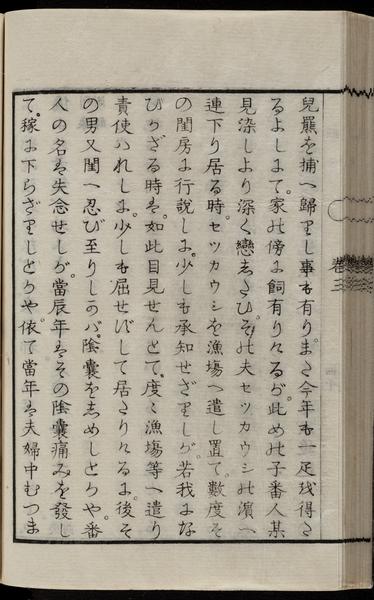 兒羆を捕へ歸りし事も有り。また今年も一疋残得さ
るよしまて。家の傍に飼有りけるが。此めの子番人某
見染しより深く戀したひ。その夫セツカウシの濱へ
連下り居る時。セツカウシを漁場へ遣し置て。數度そ
の閨房に行說しに。少しも承知せざりしが。若我にな
びかざる時は。如此目見せんとて。度々漁場等へ遣り
責使はれしに。少しも屈せずして居たりけるに。後そ
の男又閨へ忍び至りしかバ。陰嚢をしめしとかや。番
人の名は失念せしが。當辰年もその陰嚢痛みを發し
て。稼に下らざりしとかや。依て當年は夫婦中むつま
巻三